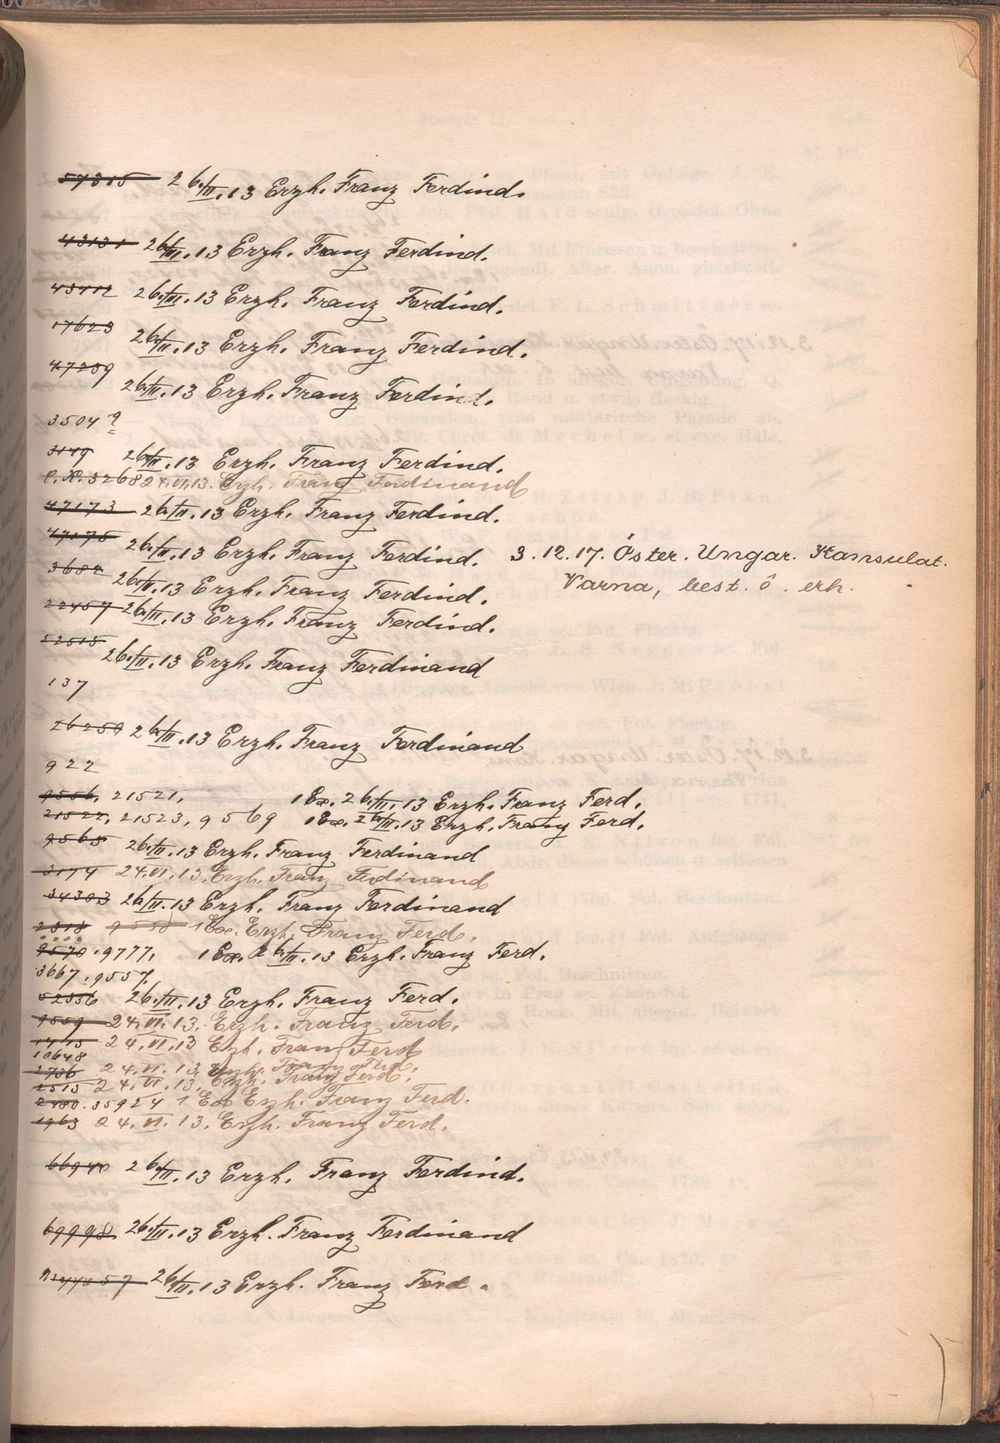 57315 26/II.13 Erzh. Franz Ferdind.
43131 26/II.13 Erzh. Franz Ferdind.
43412 26/II.13 Erzh. Franz Ferdind.
17623 26/II.13 Erzh. Franz Ferdind.
47259 26/II.13 Erzh. Franz Ferdind.
3504?
3149 26/II.13 Erzh. Franz Ferdind.
24.VI.13. Erzh. Franz Ferdinand
47173 26/II.13 Erzh. Franz Ferdind.
47175 26/II.13 Erzh. Franz Ferdind. 3.12.17. Öster. Ungar. Konsulat.
Varna, best. ô. erh.
3682 26/II.13 Erzh. Franz Ferdind.
22457 26/II.13 Erzh. Franz Ferdind.
52515 26/II.13 Erzh. Franz Ferdinand
137
26250 26/II.13 Erzh. Franz Ferdinand
922
9556, 21521, 1 Ex. 26/II.13 Erzh. Franz Ferd.
21522, 21523, 9569 1 Ex. 26/II.13 Erzh. Franz Ferd.
9565 26/II.13 Erzh. Franz Ferdinand
3174 24.VI.13. Erzh. Franz Ferdinand
34303 26/II.13 Erzh. Franz Ferdinand
2518 9558 1 Ex. Erzh. Franz Ferd.
9570.9777. 1 Ex. 26/II.13 Erzh. Franz Ferd.
3667.9557.
52336 26/II.13 Erzh. Franz Ferd.
9559 24.VI.13. Erzh. Franz Ferd.
1415 24.VI.13 Erzh. Franz Ferd
10648
2736 24.VI.13 Erzh. Franz Ferd.
2515 24.VI.13. Erzh. Franz Ferd.
2480.35924 1 Ex Erzh. Franz Ferd.
1963 24.VI.13. Erzh. Franz Ferd.
66940 26/II.13 Erzh. Franz Ferdind.
69998 26/II.13 Erzh. Franz Ferdinand
26/II.13 Erzh. Franz Ferd.